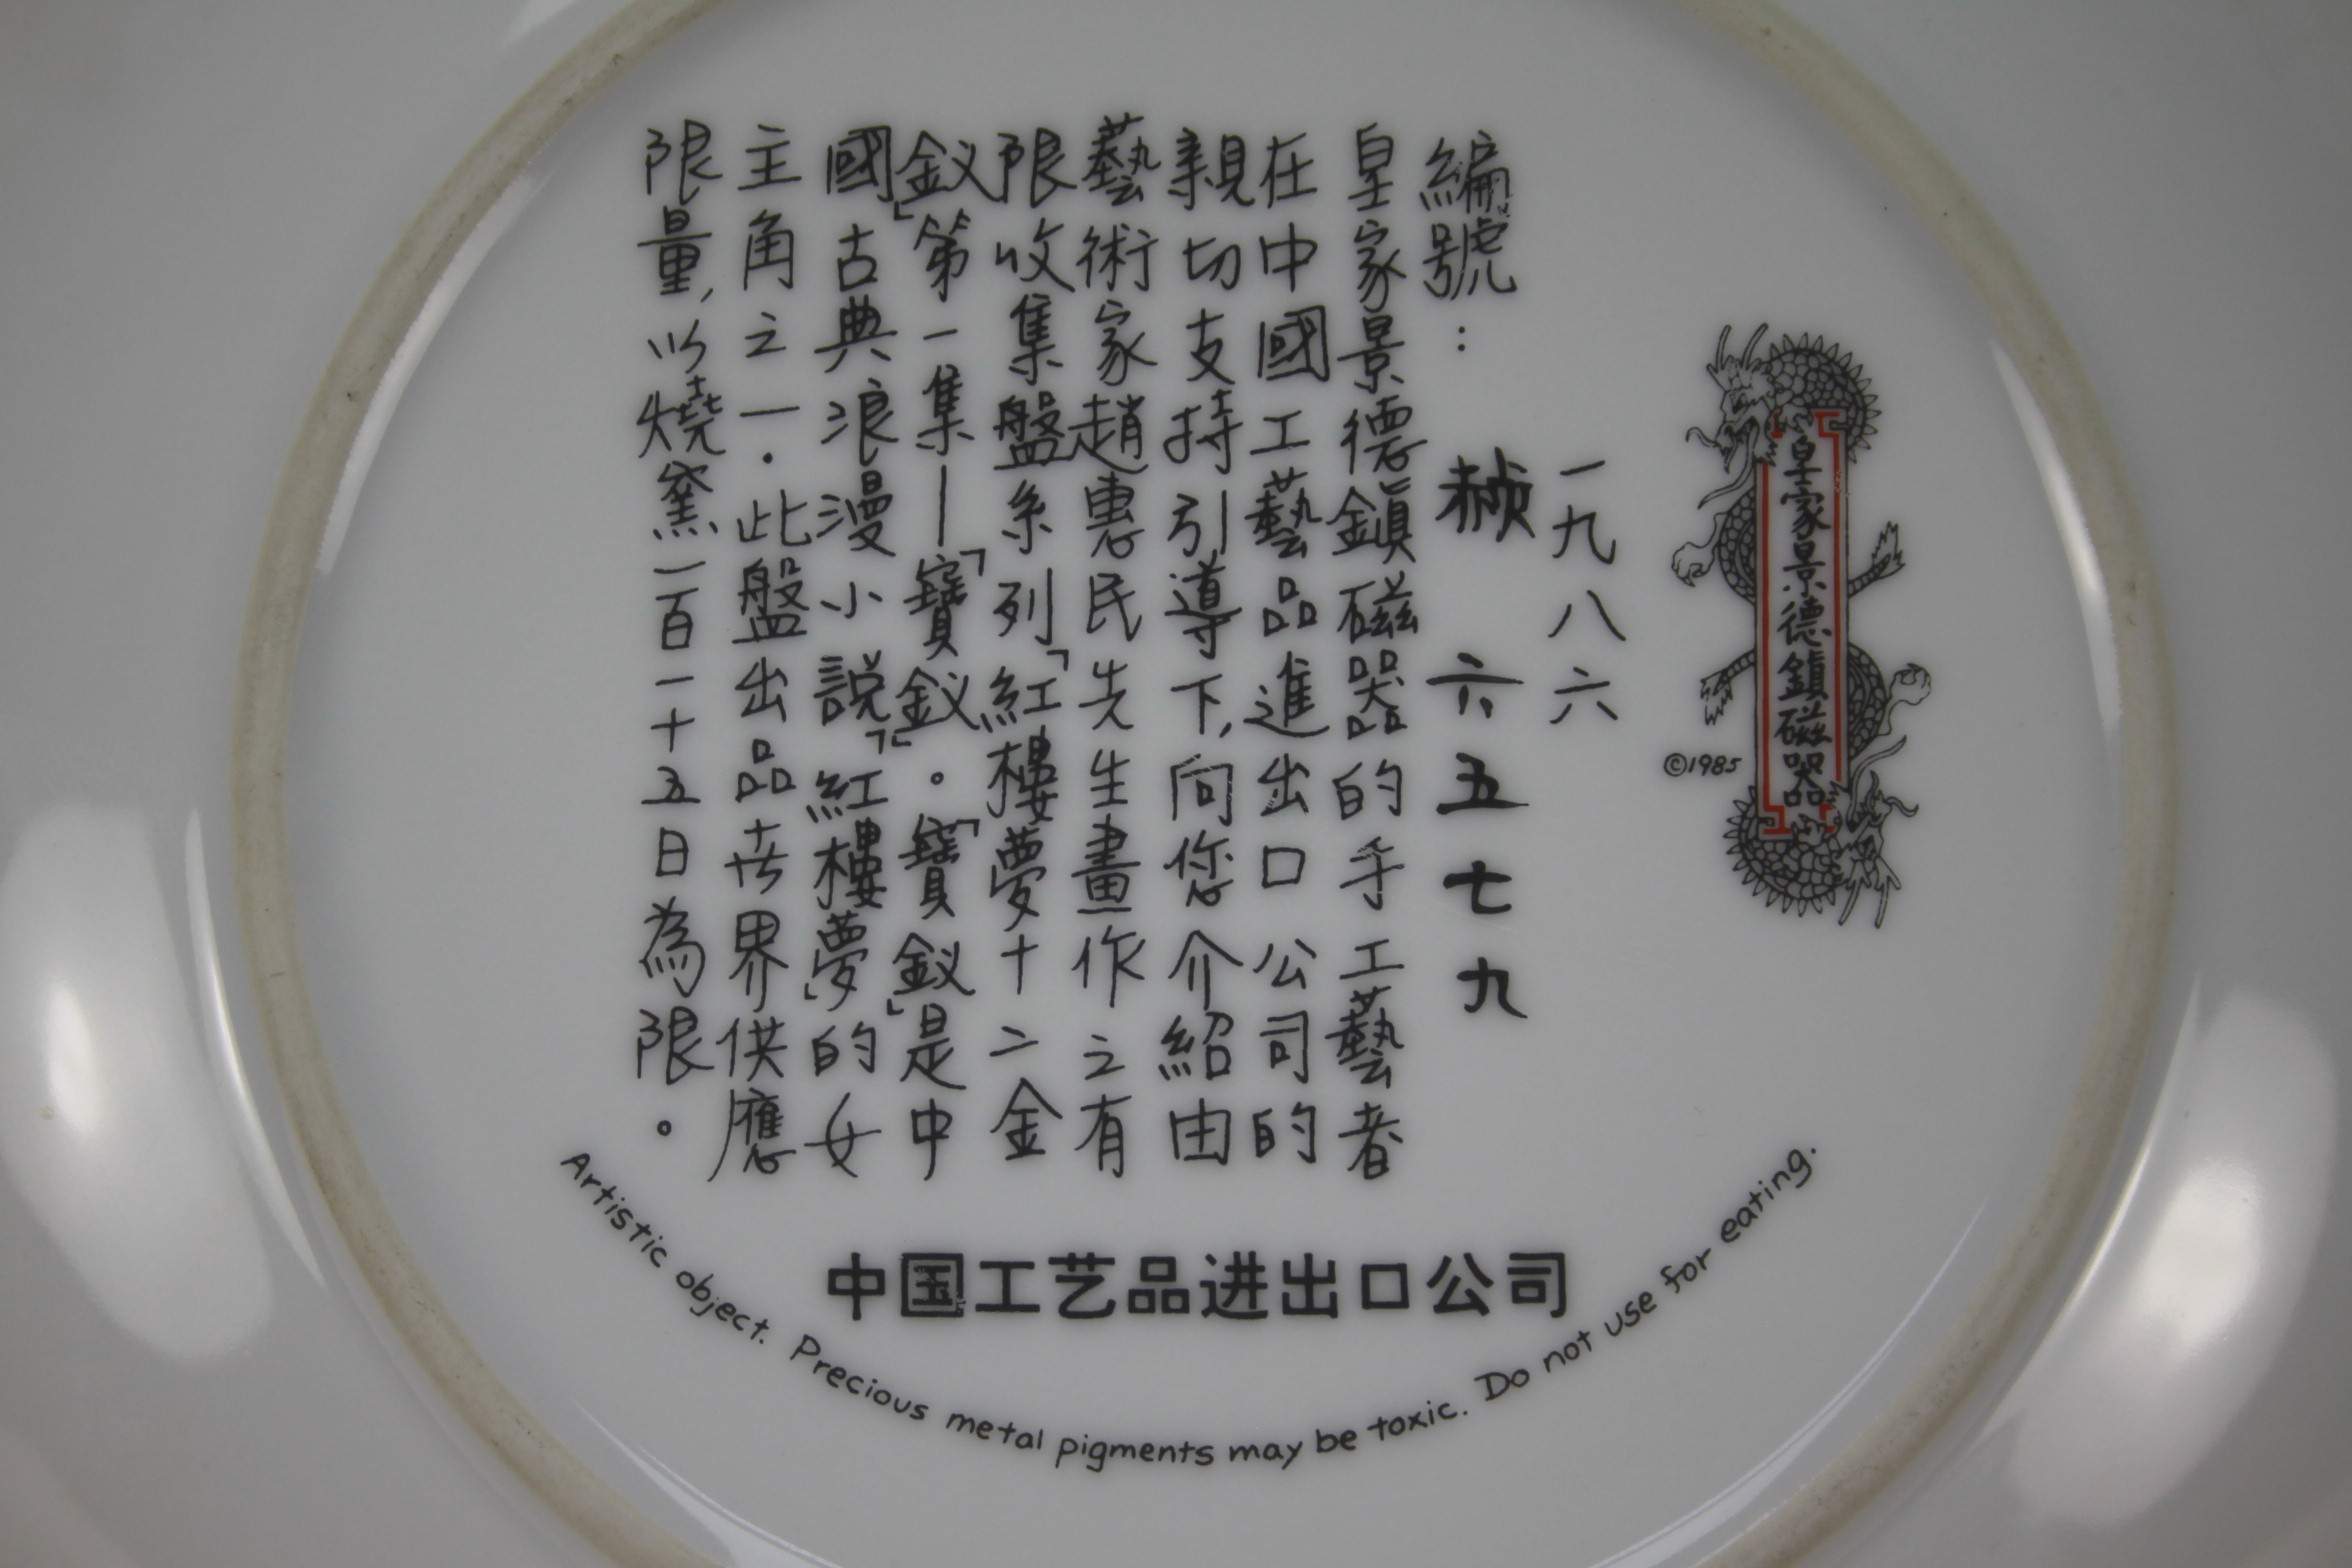 皇家景德鎮磁器
©1985
一九八六
編號： 六五七九
皇家景德鎮磁器的手工藝者
在中國工藝品進出口公司的
親切支持引導下，向您介紹由
藝術家趙惠民先生畫作之有
限收集盤系列「紅樓夢十二金
釵」第一集—「寶釵」。「寶釵」是中
國古典浪漫小説「紅樓夢」的女
主角之一．此盤出品卋界供應
限量，以燒窯一百一十五日為限。
中国工艺品进出口公司
Artistic object. Precious metal pigments may be toxic. Do not use for eating.